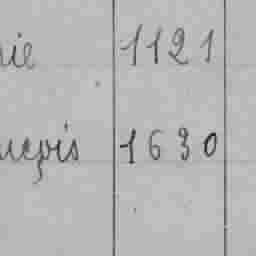 nie 1121
nçois 1630